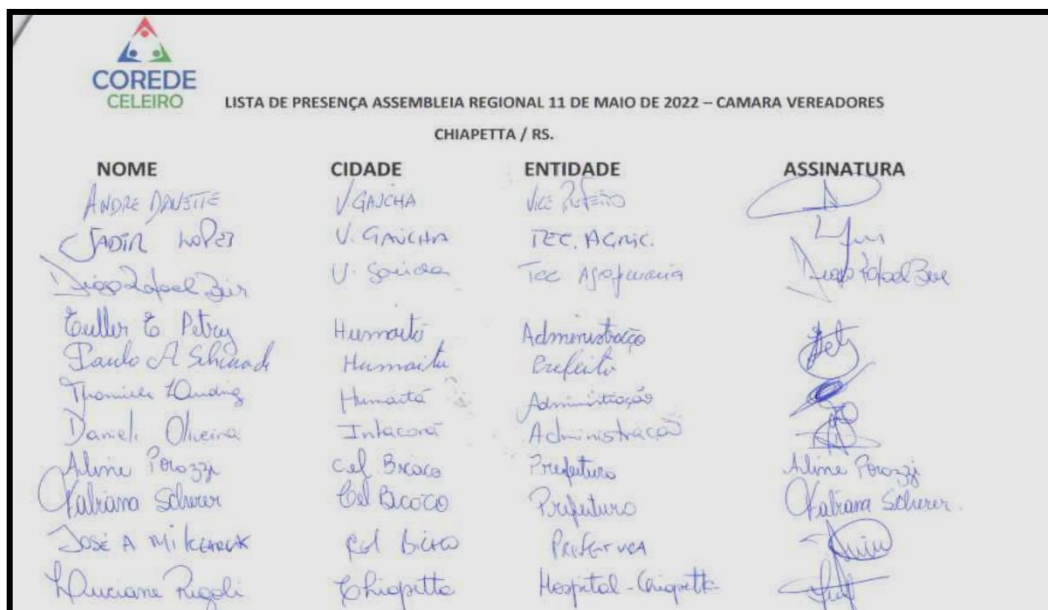 COREDE
CELEIRO
LISTA DE PRESENÇA ASSEMBLEIA REGIONAL 11 DE MAIO DE 2022 – CAMARA VEREADORES
CHIAPETTA / RS.
NOME CIDADE ENTIDADE ASSINATURA
ANDRE V GAUCHA VICE PREFEITO
JADIR LOPES V. GAUCHA TEC. AGRIC.
Diego Rafael V. Gaucha Tec Agropecuaria Diego Rafael
E. Petry Humaitá Administração
Paulo A Humaita Prefeito
Humaitá Administração
Danieli Oliveira Administração
Aline Perozzi Cel Bicaco Prefeitura Aline Perozzi
Fabiana Scherer Cel Bicaco Prefeitura Fabiana Scherer.
JOSÉ A Cel BICACO PREFEITURA
Luciane Rigoli Chiapetta Hospital - Chiapetta